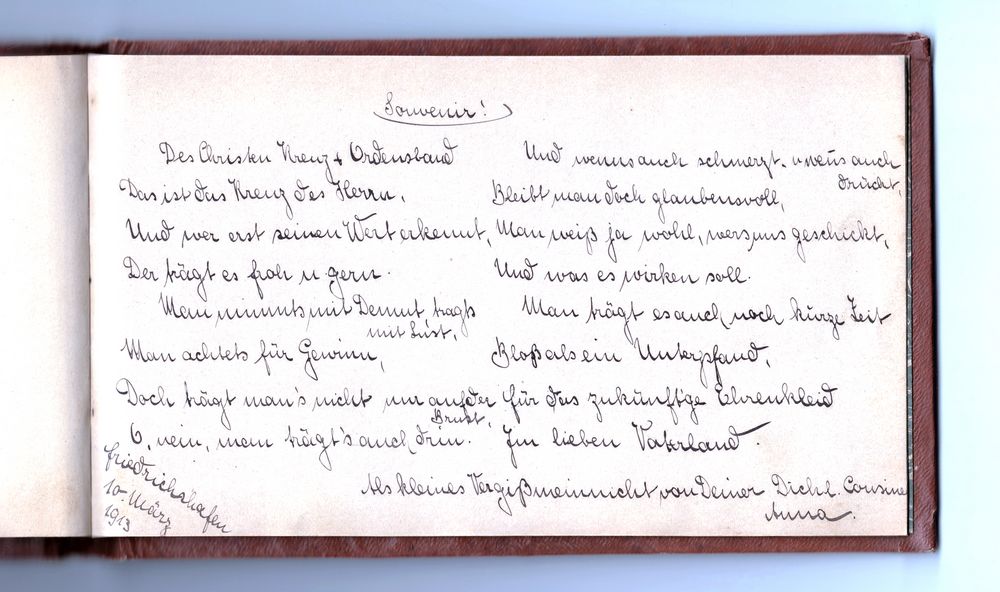 Souvenir!
Des Christen Kreuz & Ordensband
Das ist das Kreuz des Herrn,
Und wer erst seinen Wert erkennt,
Der trägt es froh u. gern.
Man nimmts mit Demut tragts
mit Lust,
Man achtets für Gewinn,
Doch trägt man's nicht nur auf der
Brust,
O, nein, man trägt's auch drin.
Und wenns auch schmerzt u. wen̄s auch
drückt,
Bleibt man doch glaubensvoll,
Man weiß ja wohl, wers uns geschickt,
Und was es wirken soll.
Man trägt es auch noch kurze Zeit
Bloß als ein Unterpfand,
für das zukünftge Ehrenkleid
Im lieben Vaterland.
Als kleines Vergißmeinnicht von Deiner Dichl. Cousine
Anna.
friedrichshafen
10. März
1913